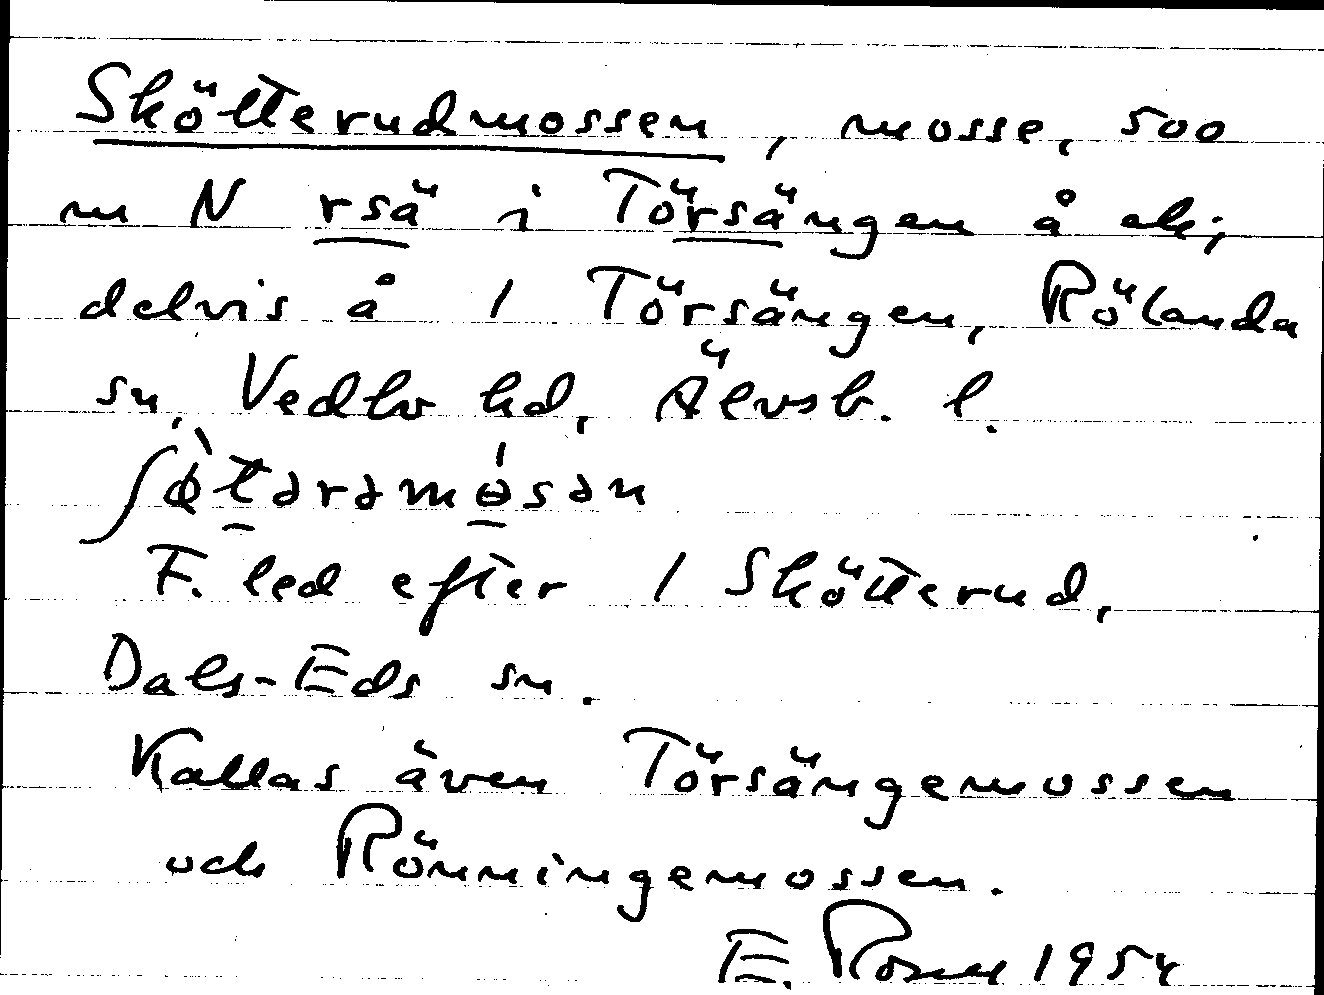 Skötterudmossen, mosse, 500
m N rsä i Törsängen å ek;
delvis å 1 Törsängen, Rölanda
sn, Vedbo hd, Älvsb. l.
ʃø̀tərəmósən
F. led efter 1 Skötterud,
Dals-Eds sn.
Kallas även Törsängemossen
och Rönningemossen.
E. Rosell 1954